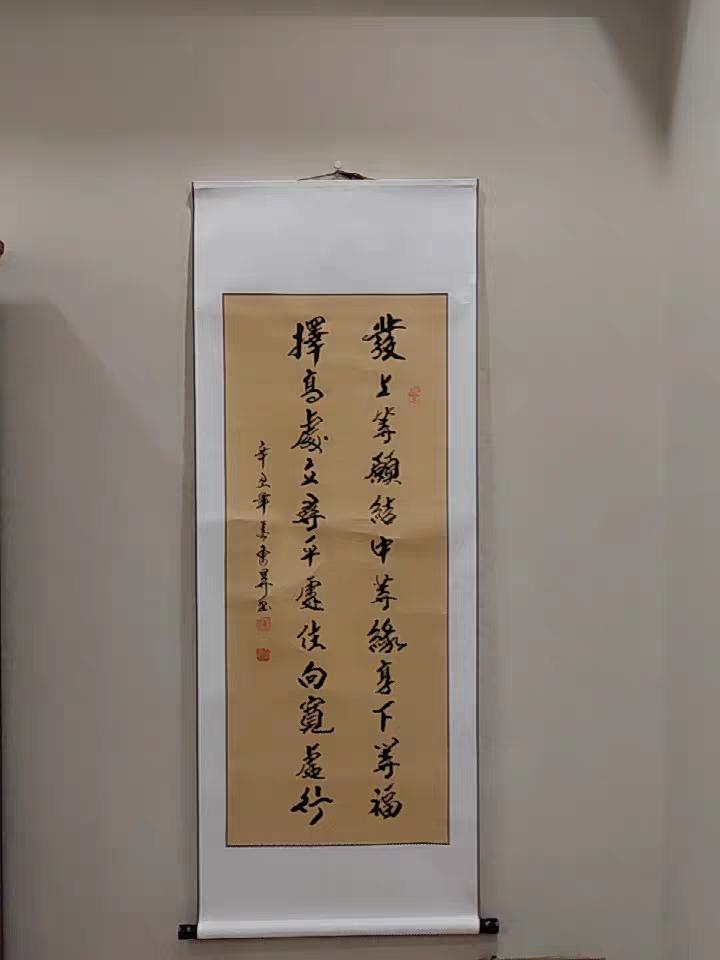 發上等願結中等緣享下等福
擇高處立尋平處住向寬處行
辛丑年